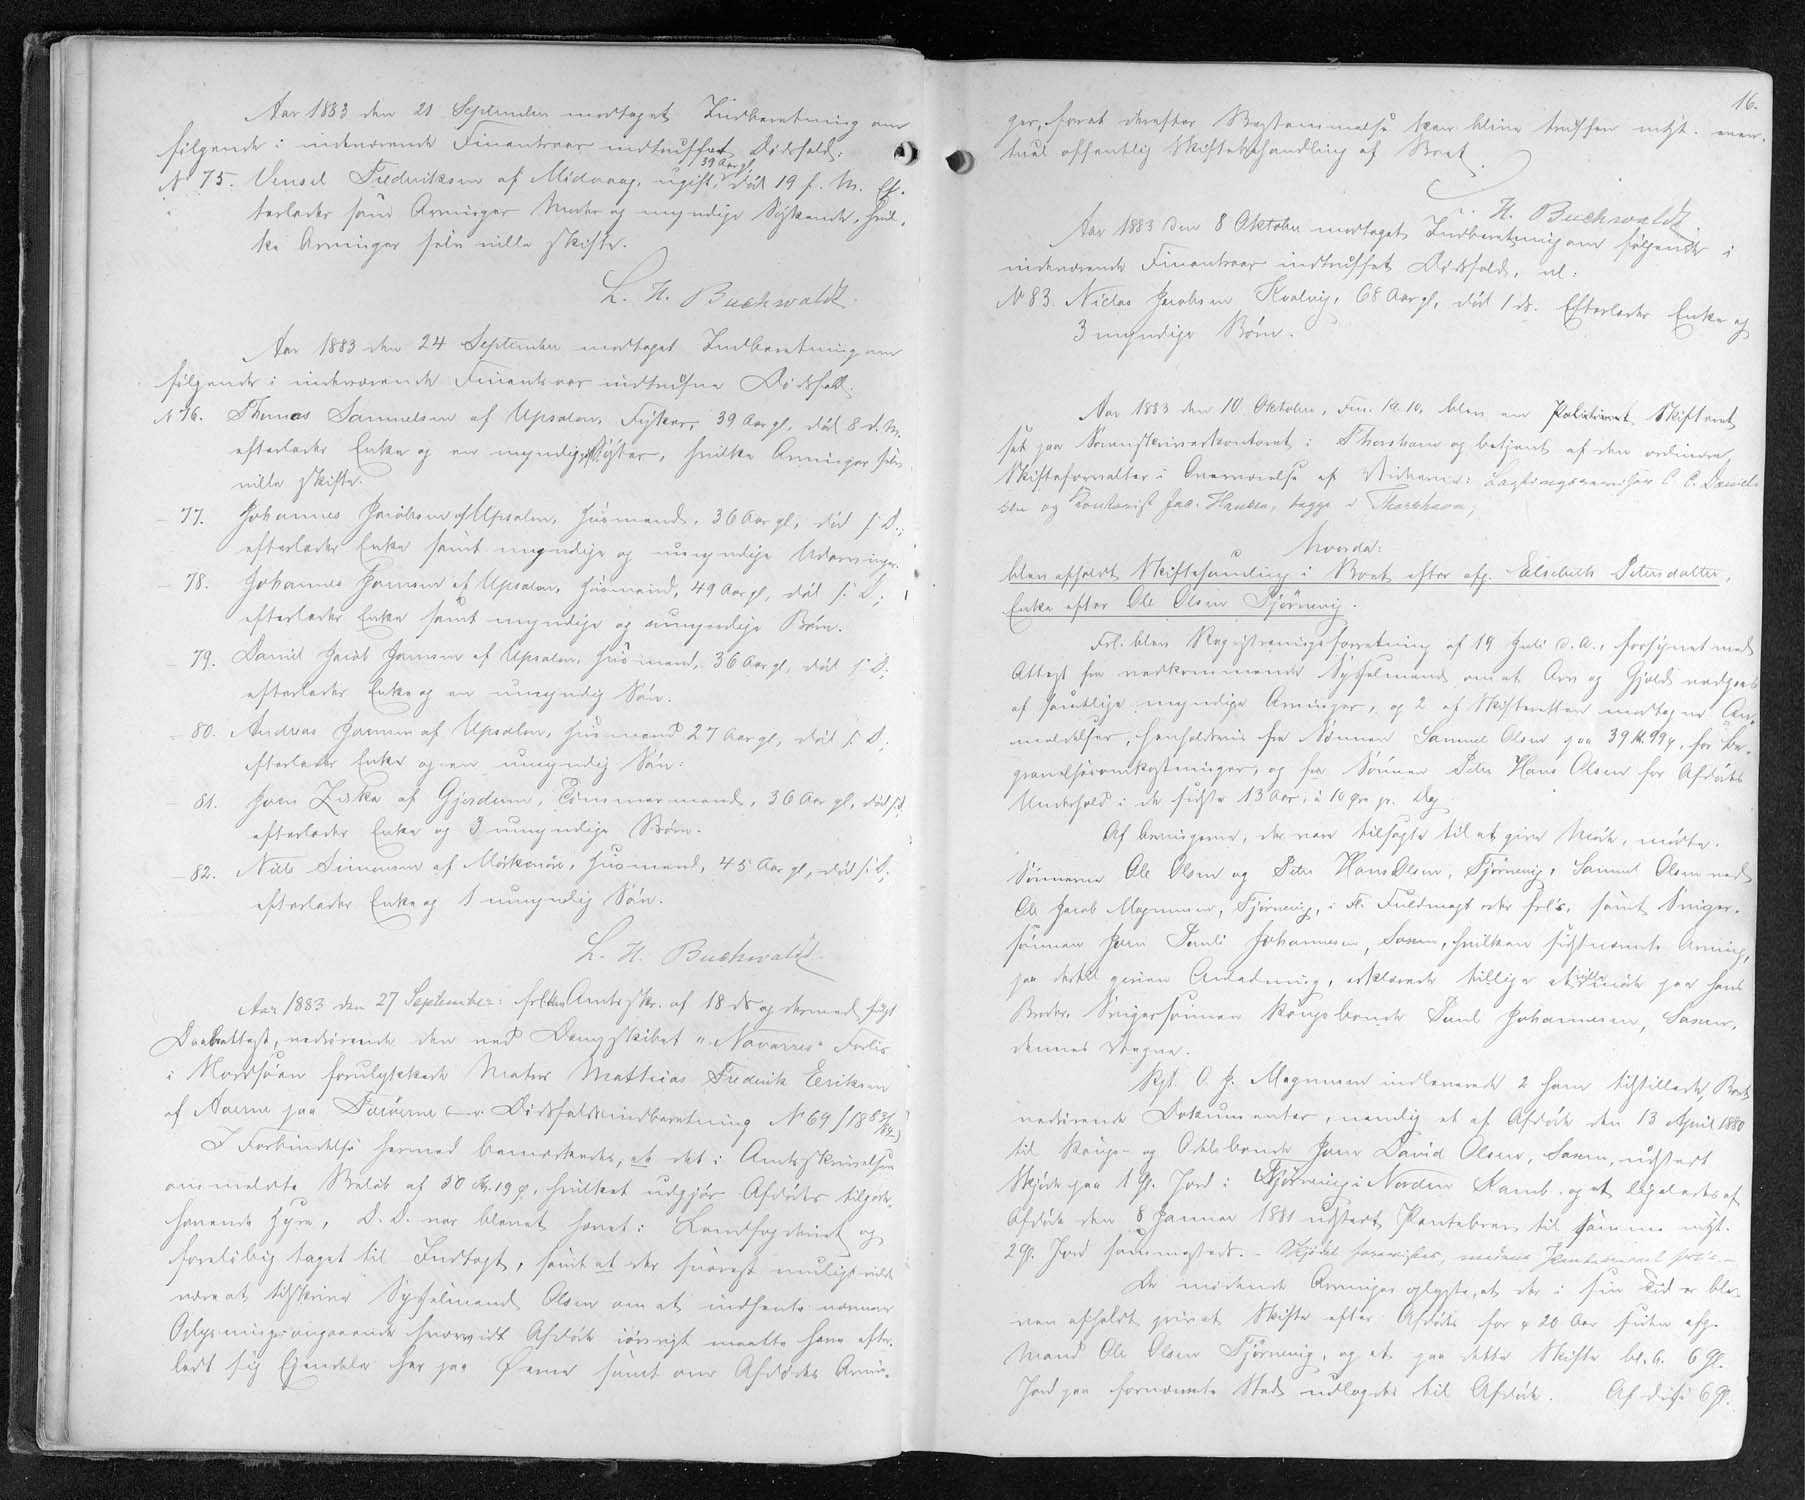 Aar 1883 den 21 September modtaget Indberetning om
følgende i indeværende Finantsaar indtruffet Dødsfald:
39 Aar gl,
N 75. Vensil Frederiksen af Midvaag, ugift, død 19 f. M. Ef-
terlader som Arvinger Moder og myndige Sødskende, hvil-
ke Arvinger selv ville skifte.
L. H. Buchwaldt.
Aar 1883 den 24 September modtaget Indberetning om
følgende i indeværende Finantsaar indtrufne Dødsfald:
N 76. Thomas Samuelsen af Upsalen, Fisker, 39 Aar gl, død 8 d. M.
efterlader Enke og en myndig Søster, hvilke Arvinger selv
ville skifte.
- 77. Johannes Jacobsen af Upsalen, Huusmand, 36 Aar gl, død s. D.,
efterlader Enke samt myndige og umyndige Udarvinger.
- 78. Johannes Joensen af Upsalen, Huusmand, 49 Aar gl, død s. D,
efterlader Enke samt myndige og umyndige Børn.
- 79. Daniel Jacob Joensen af Upsalen, Huusmand, 36 Aar gl, død s. D,
efterlader Enke og en umyndig Søn.
- 80. Andreas Joensen af Upsalen, Huusmand 27 Aar gl, død s. D,
efterlader Enke og en umyndig Søn.
- 81. Joen Ziska af Gjerdum, Tømmermand, 36 Aar gl, død s. D.
efterlader Enke og 3 umyndige Børn.
- 82. Niels Simonsen af Mørkenøre, Huusmand, 45 Aar gl, død s. D,
efterlader Enke og 1 umyndig Søn.
L. H. Buchwaldt.
Aar 1883 den 27 September: frl. blev Amtsskr. af 18 ds og dermed fulgt
Daabsattest, vedrørende den ved Dampskibet "Navarres" Forlis
i Nordsøen forulykkede Matros Matthias Frederik Eriksen
af Aaerne paa Færøerne (- v. Dødsfaldsindberetning N 69/1883/84-)
I Forbindelse hermed bemærkedes, at det i Amtsskrivelsen
ommeldte Beløb af 50 Kr. 19 Ø, hvilket udgjør Afdødes tilgode-
havende Hyre, D. D. var blevet hævet i Landfogderiet og
foreløbig taget til Indtægt, samt at der snarest muligt vilde
være at tilskrive Sysselmand Olsen om at indhente nærmere
Oplysninger angaaende hvorvidt Afdøde iøvrigt maatte have efter-
ladt sig Ejendele her paa Øerne samt om Afdødes Arvin-
16.
ger, forat derefter Bestemmelse kan blive truffen mht. even-
tuel offentlig Skiftebehandling af Boet.
L. H. Buchwaldt
Aar 1883 den 8 Oktober modtaget Indberetning om følgende i
indeværende Finantsaar indtruffet Dødsfald, nl:
N 83. Niclas Jacobsen Kvalvig, 68 Aar gl, død 1 ds. Efterlader Enke og
3 myndige Børn.
Aar 1883 den 10 Oktober, Fm. Kl. 10, blev en Skifteret
sat paa Sorenskriverkontoret i Thorshavn og betjent af den ordinære
Skifteforvalter i Overværelse af Vidnerne: Lagtingsrevisor C. C. Daniel-
sen og Kontorist Jac. Hansen, begge i Thorshavn,
hvorda:
blev afholdt Skiftesamling i Boet efter afg. Elsebeth Petersdatter,
Enke efter Ole Olsen Tjørnevig.
Frl. blev Registreringsforretning af 19 Juli d. A., forsynet med
Attest fra vedkommende Sysselmand om at Arv og Gjæld vedgaaes
af samtlige myndige Arvinger, og 2 af Skifteretten modtagne An-
meldelser, henholdsvis fra Sønnen Samuel Olsen paa 39 Kr. 99 Ø, for Be-
gravelsesomkostninger, og fra Sønnen Peter Hans Olsen for Afdødes
Underhold i de sidste 13 Aar, à 10 Øre pr. Dag.
Af Arvingerne, der var tilsagte til at give Møde, mødte.
Sønnerne Ole Olsen og Peter Hans Olsen, Tjørnevig, Samuel Olsen ved
Ole Jacob Magnussen, Tjørnevig, i Flg. Fuldmagt der frl's, samt Sviger-
sønnen Joen Pauli Johannesen, Saxen, hvilken sidstnævnte Arving,
paa dertil given Anledning, erklærede tillige at ville møde paa hans
Broder, Svigersønnen Kongsbonde Poul Johannesen, Saxen,
dennes Vegne.
Rpt. O. J. Magnussen indleverede 2 ham tilstillede, Boet
vedrørende Dokumenter, nemlig et af Afdøde den 13 April 1880
til Konge- og Odelsbonde Joen David Olsen, Saxen, udstedt
Skjøde paa 1 Gl. Jord i Tjørnevig i Norden Kamb. og et ligeledes af
Afdøde den 8 Januar 1881 udstedt Pantebrev til samme mht.
2 Gl. Jord sammesteds. - Skjødet foreviistes, medens Pantebrevet frl's. -
De mødende Arvinger oplyste, at der i sin Tid er ble-
ven afholdt privat Skifte efter Afdødes for c 20 Aar siden afg.
Mand Ole Olsen Tjørnevig, og at paa dette Skifte bl. A. 6 Gl.
Jord paa fornævnte Sted udlagdes til Afdøde. Af disse 6 Gl.